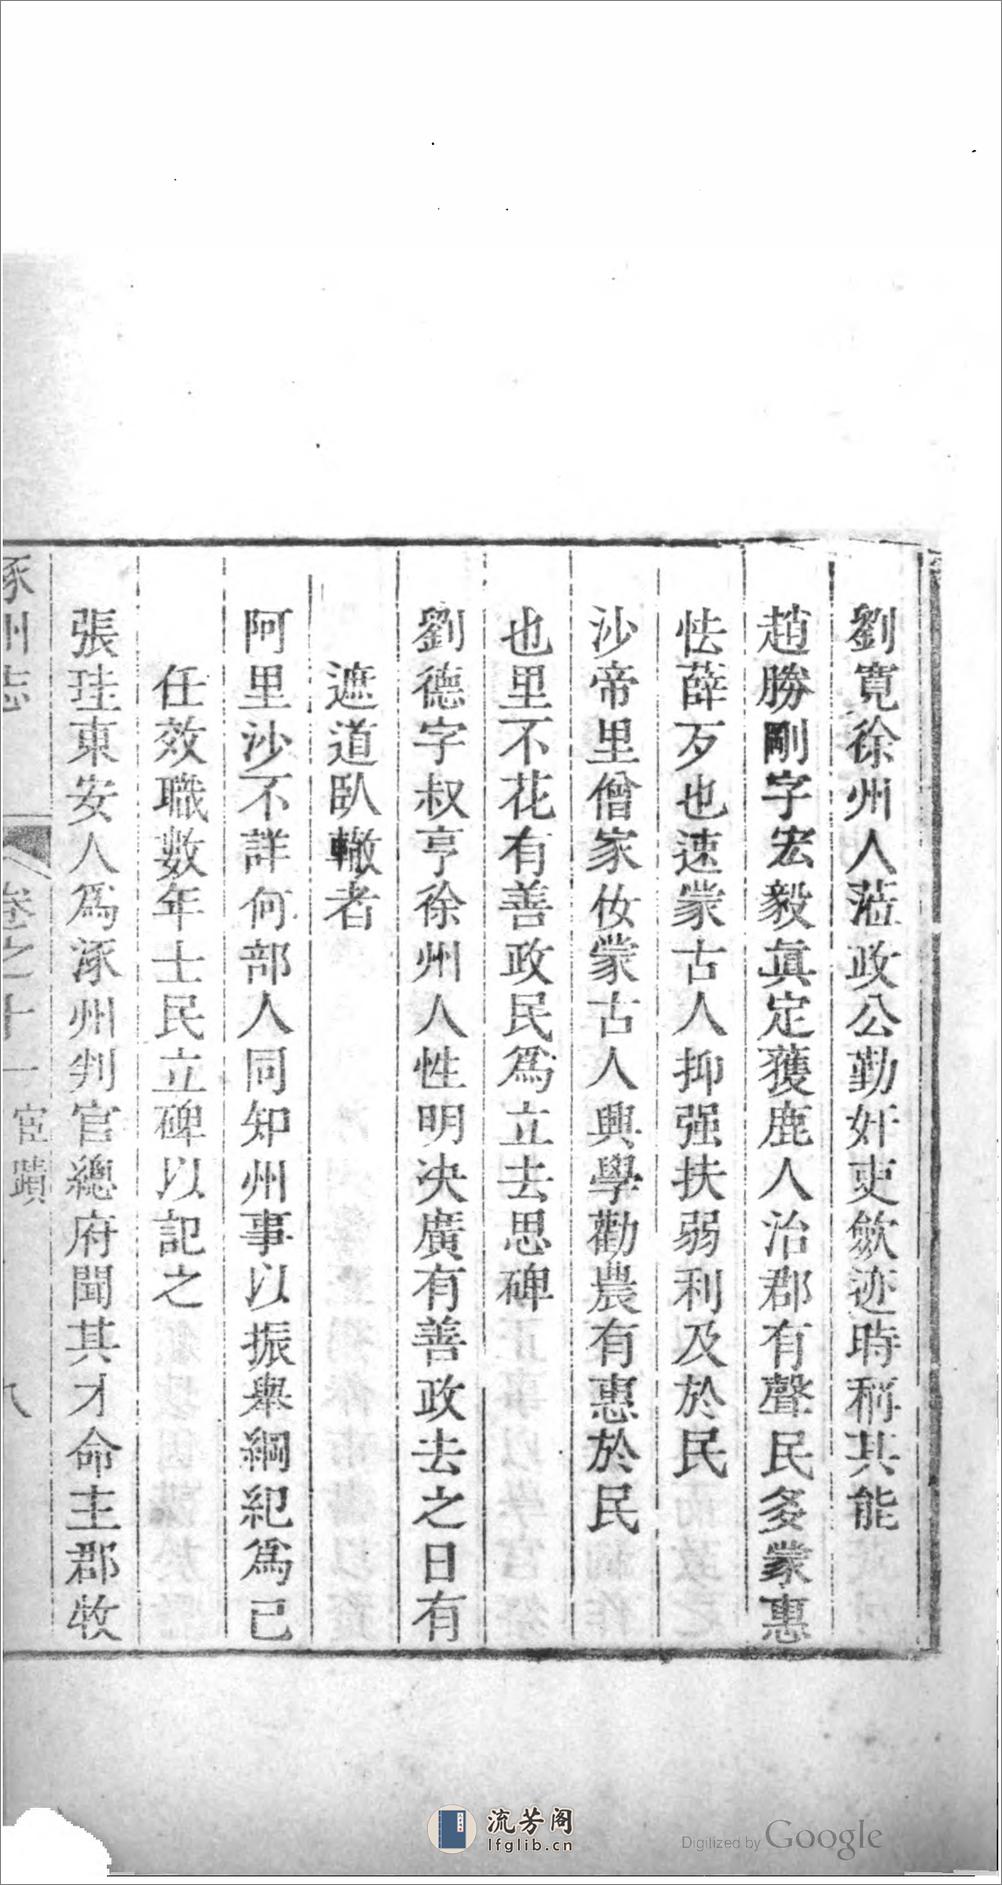 劉寬徐州人蒞政公勤奸吏斂迹時稱其能
趙勝剛字宏毅眞定獲鹿人治郡有聲民多蒙惠
怯薛歹也速蒙古人抑强扶弱利及於民
沙帝里僧家奴蒙古人興學勸農有惠於民
也里不花有善政民爲立去思碑
劉德字叔亨徐州人性明决廣有善政去之日有
遮道臥轍者
阿里沙不詳何部人同知州事以振舉綱紀爲己
任效職數年士民立碑以記之
張珪東安人爲涿州判官總府聞其才命主郡牧
涿州志 卷之十一 宦蹟 八
流芳阁
lfglib.cn
Digitized by Google